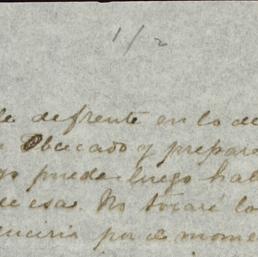 1/2
de frente en lo de
Obcecado y prepar
puede luego hab
de esa. No tocaré lo
por el mome